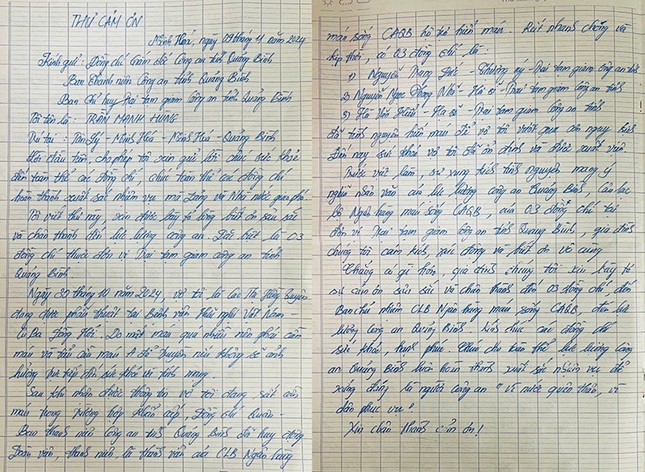 THƯ CẢM ƠN
Minh Hóa, ngày 09 tháng 11 năm 2024
Kính gửi: Đồng chí Giám đốc Công an tỉnh Quảng Bình
Ban Thanh niên Công an tỉnh Quảng Bình
Ban chỉ huy Trại tạm giam Công an tỉnh Quảng Bình
Tôi tên là: TRẦN MẠNH HÙNG
Trú tại: Tân Lý - Minh Hóa - Minh Hóa - Quảng Bình
Lời đầu tiên, cho phép tôi xin gửi lời chúc sức khỏe
đến toàn thể các đồng chí, chúc toàn thể các đồng chí
hoàn thành xuất sắc nhiệm vụ mà Đảng và Nhà nước giao phó.
Tôi viết thư này, xin được bày tỏ lòng biết ơn sâu sắc
và chân thành đến lực lượng công an. Đặc biệt là 03
đồng chí thuộc đơn vị Trại tạm giam công an tỉnh
Quảng Bình.
Ngày 30 tháng 10 năm 2024, vợ tôi là Cao Thị Hồng Duyên
đang được phẫu thuật tại Bệnh viện Hữu nghị Việt Nam -
Cu Ba Đồng Hới. Do mất máu quá nhiều nên phải cần
máu và tiểu cầu máu A để truyền nếu không sẽ ảnh
hưởng trực tiếp đến sức khỏe và tính mạng.
Sau khi nhận được thông tin vợ tôi đang rất cần
máu trong trường hợp khẩn cấp, Đồng chí Xuân -
Ban thanh niên Công an tỉnh Quảng Bình đã huy động
Đoàn viên, thanh niên là thành viên của CLB Ngân hàng
máu sống CAQB hỗ trợ hiến máu. Rất nhanh chóng và
kịp thời, có 03 đồng chí là:
1) Nguyễn Trung Đức - Thượng úy - Trại tạm giam công an tỉnh
2) Nguyễn Ngọc Đông Nhi - Hạ sĩ - Trại tạm giam công an tỉnh
3) Hồ Văn Hiếu - Hạ sĩ - Trại tạm giam công an tỉnh
đã tình nguyện hiến máu để vợ tôi vượt qua cơn nguy kịch
Đến nay sức khỏe vợ tôi đã ổn định và được xuất viện
Trước việc làm, sự xung kích tình nguyện mang ý
nghĩa nhân văn của lực lượng công an Quảng Bình, Câu lạc
bộ Ngân hàng máu sống CAQB, của 03 đồng chí tại
đơn vị Trại tạm giam công an tỉnh Quảng Bình, gia đình
chúng tôi cảm kích, xúc động và biết ơn vô cùng.
Chẳng có gì hơn, gia đình chúng tôi xin bày tỏ
sự cảm ơn sâu sắc và chân thành đến 03 đồng chí, đến
Ban chủ nhiệm CLB Ngân hàng máu sống CAQB, đến lực
lượng Công an Quảng Bình. Xin chúc các đồng chí
sức khỏe, hạnh phúc. Chúc cho toàn thể lực lượng Công
an Quảng Bình luôn hoàn thành xuất sắc nhiệm vụ để
xứng đáng là người công an "Vì nước quên thân, vì
dân phục vụ".
Xin chân thành cảm ơn!